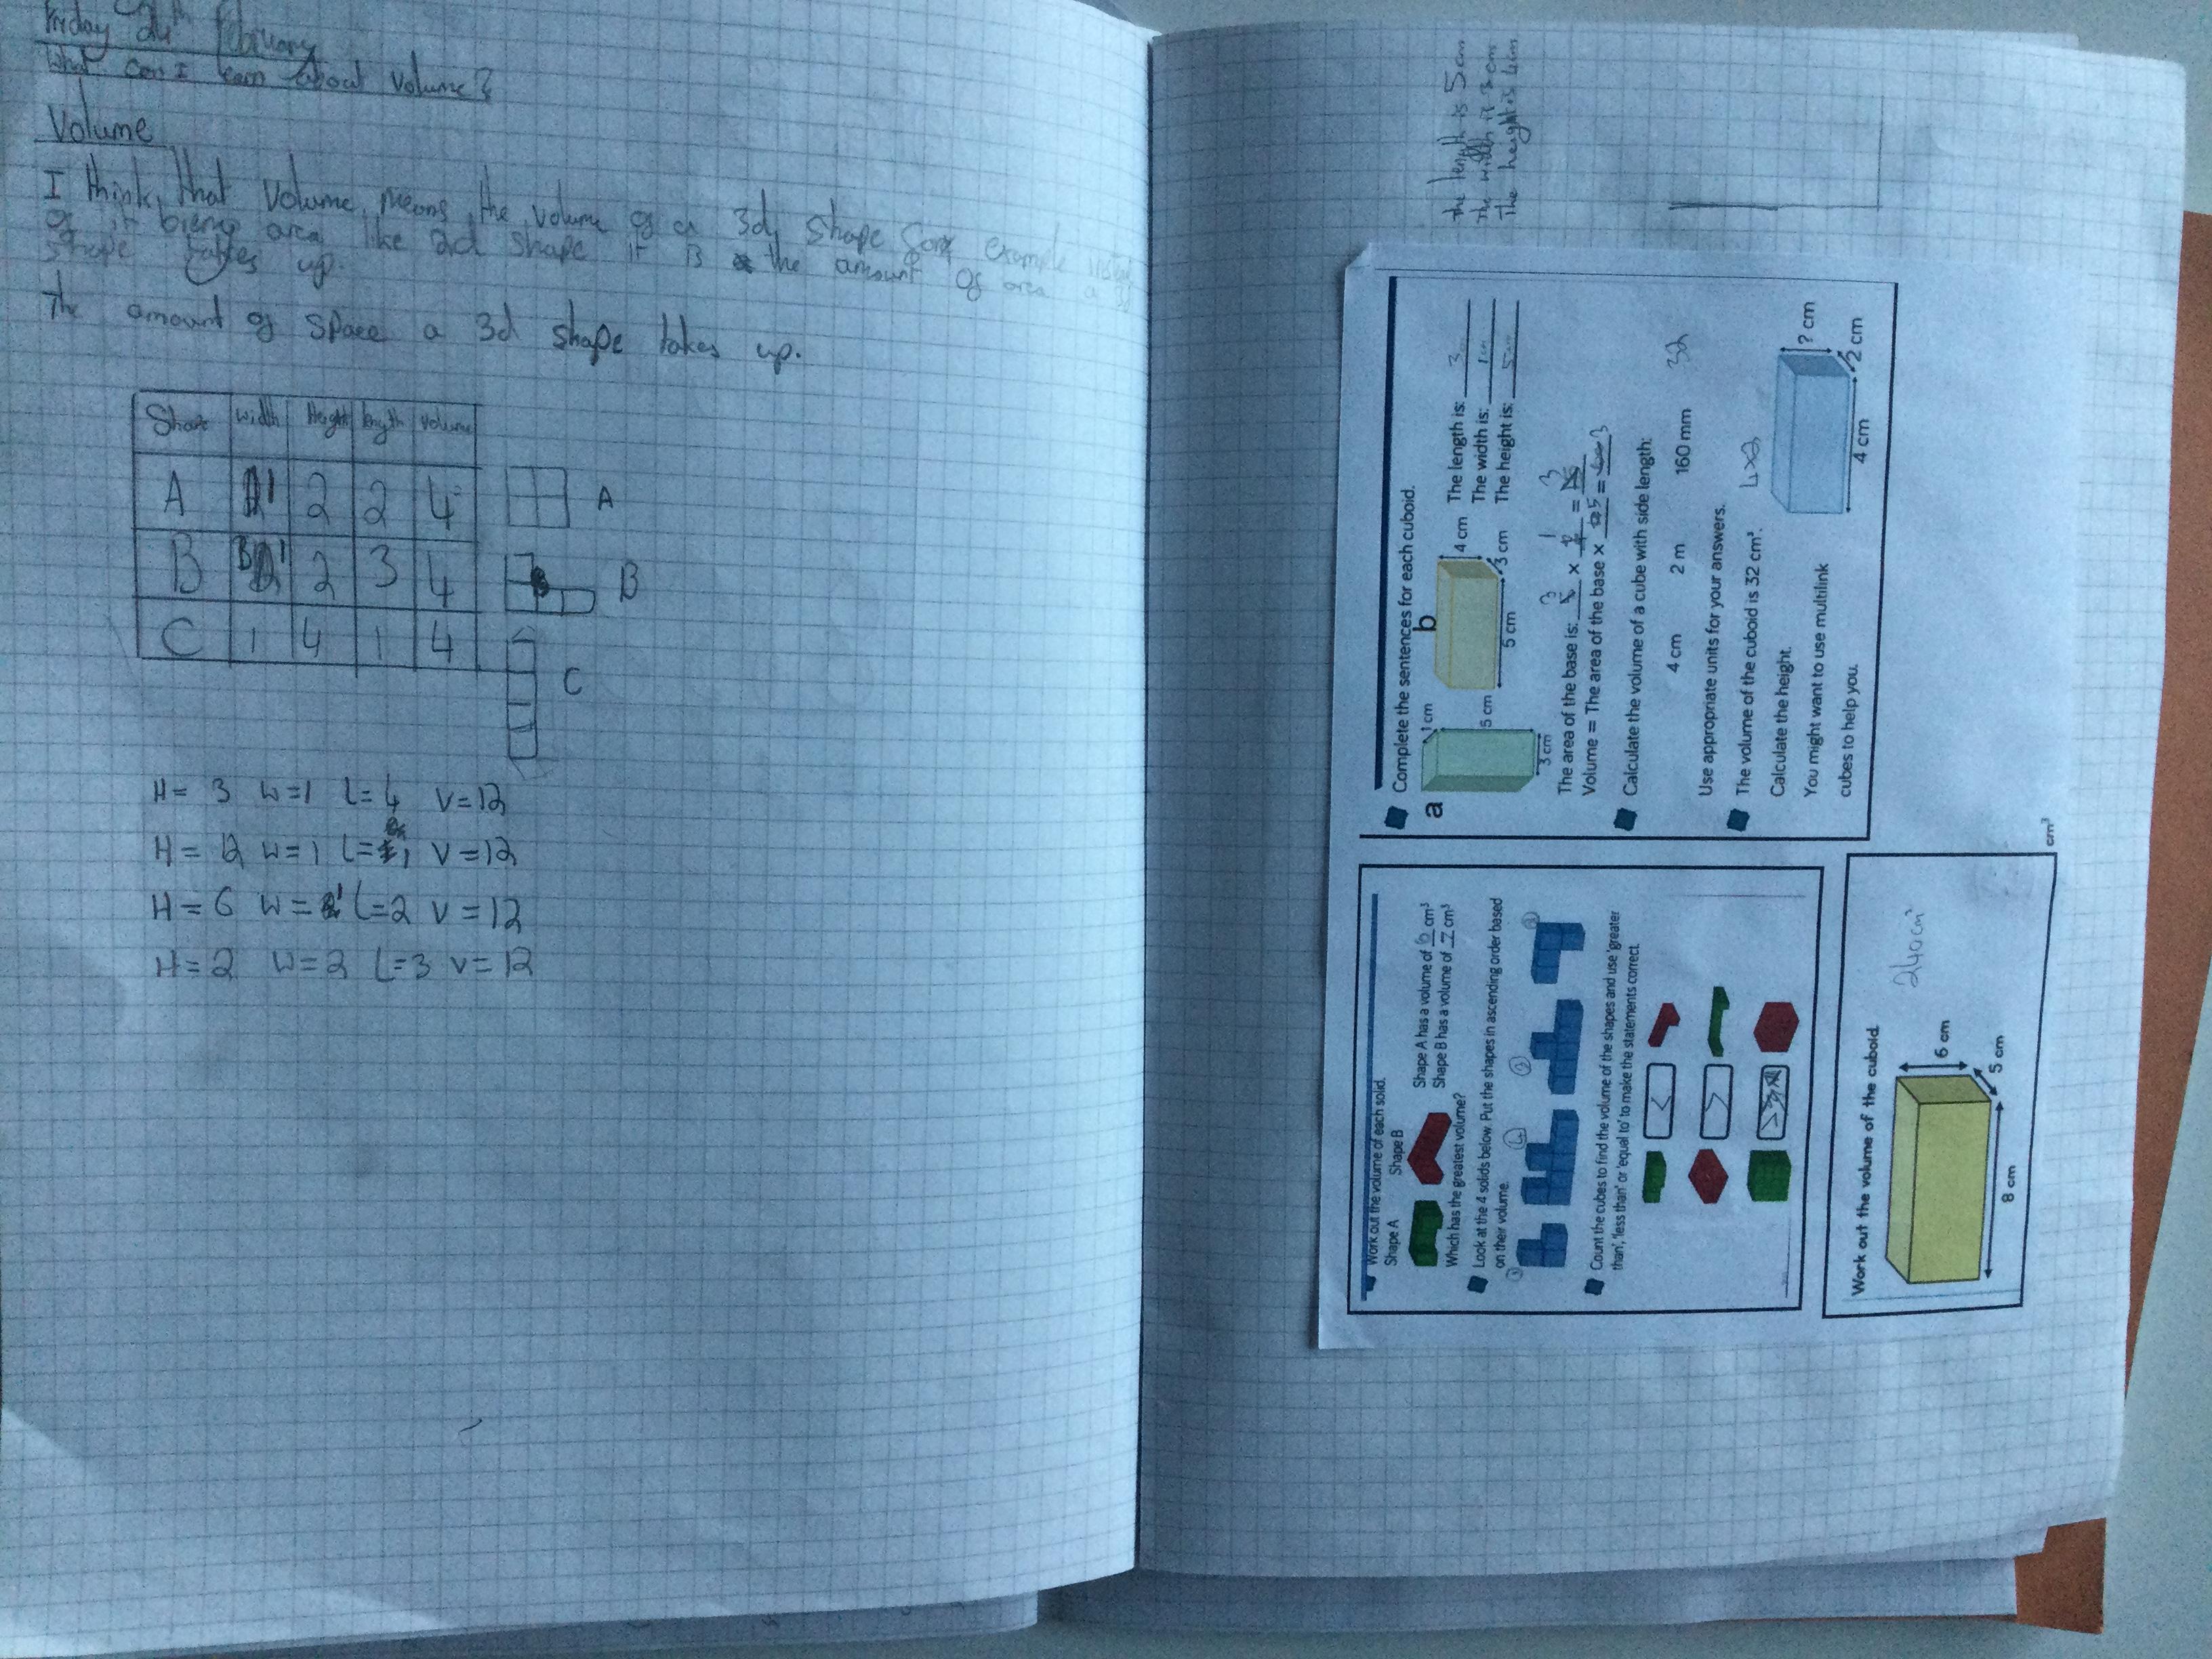 Friday 24th February
What can I learn about volume?
Volume
I think that Volume means the volume of a 3d shape for example
of it bieng area like 2d shape it is the amount of area a 3d
shape takes up.
The amount of space a 3d shape takes up.
Shape width Height length volume
A 1 2 2 4
B 1 2 3 4
C 1 4 1 4
A
B
C
H= 3 W=1 L=4 V=12
H= 12 W=1 L=1 V=12
H=6 W=1 L=2 V=12
H=2 W=2 L=3 V=12
The length is 5cm
The width is 3cm
The height is 4cm
Complete the sentences for each cuboid.
a
1 cm
5 cm
3 cm
b
4 cm
3 cm
5 cm
The length is: 3
The width is: 1cm
The height is: 5cm
The area of the base is: 3 × 1 = 3
Volume = The area of the base × 5 = 3
Calculate the volume of a cube with side length:
4 cm 2 m 160 mm
32
Use appropriate units for your answers.
The volume of the cuboid is 32 cm³.
4×2
Calculate the height.
You might want to use multilink
cubes to help you.
? cm
2 cm
4 cm
Work out the volume of each solid.
Shape A Shape B
Shape A has a volume of 6 cm³
Shape B has a volume of 7 cm³
Which has the greatest volume?
Look at the 4 solids below. Put the shapes in ascending order based
on their volume.
Count the cubes to find the volume of the shapes and use 'greater
than', 'less than' or 'equal to' to make the statements correct.
<
>
Work out the volume of the cuboid.
6 cm
5 cm
8 cm
240cm³
cm³